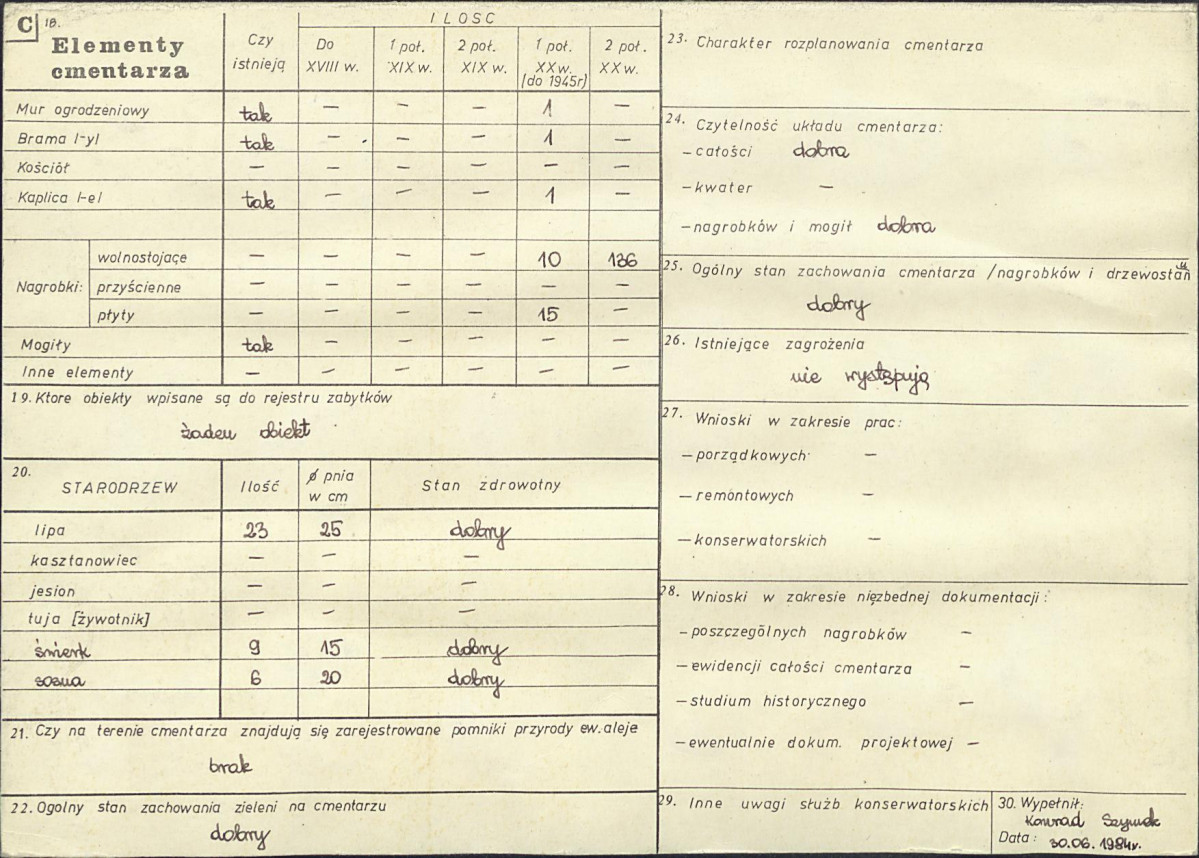 C 18.
Elementy cmentarza
Czy istnieją
ILOSC
Do XVIII w.
1 poł. XIX w.
2 poł. XIX w.
1 poł. XX w. (do 1945r)
2 poł. XX w.
Mur ogrodzeniowy tak — — — 1 —
Brama /-y/ tak — — — 1 —
Kościół — — — — — —
Kaplica /-e/ tak — — — 1 —
Nagrobki:
wolnostojące — — — — 10 136
przyścienne — — — — — —
płyty — — — — 15 —
Mogiły tak — — — — —
Inne elementy — — — — — —
19. Ktore obiekty wpisane są do rejestru zabytków
żaden obiekt
20. STARODRZEW Ilość ϕ pnia w cm Stan zdrowotny
lipa 23 25 dobry
kasztanowiec — — —
jesion — — —
tuja [żywotnik] — — —
świerk 9 15 dobry
sosna 6 20 dobry
21. Czy na terenie cmentarza znajdują się zarejestrowane pomniki przyrody ew. aleje
brak
22. Ogolny stan zachowania zieleni na cmentarzu
dobry
23. Charakter rozplanowania cmentarza
24. Czytelność układu cmentarza:
— całości dobra
— kwater —
— nagrobków i mogił dobra
25. Ogólny stan zachowania cmentarza /nagrobków i drzewostan
dobry
26. Istniejące zagrożenia
nie występują
27. Wnioski w zakresie prac:
— porządkowych —
— remontowych —
— konserwatorskich —
28. Wnioski w zakresie niezbednej dokumentacji:
— poszczególnych nagrobków —
— ewidencji całości cmentarza —
— studium historycznego —
— ewentualnie dokum. projektowej —
29. Inne uwagi służb konserwatorskich
30. Wypełnił:
Konrad Szymek
Data: 30.06.1984r.